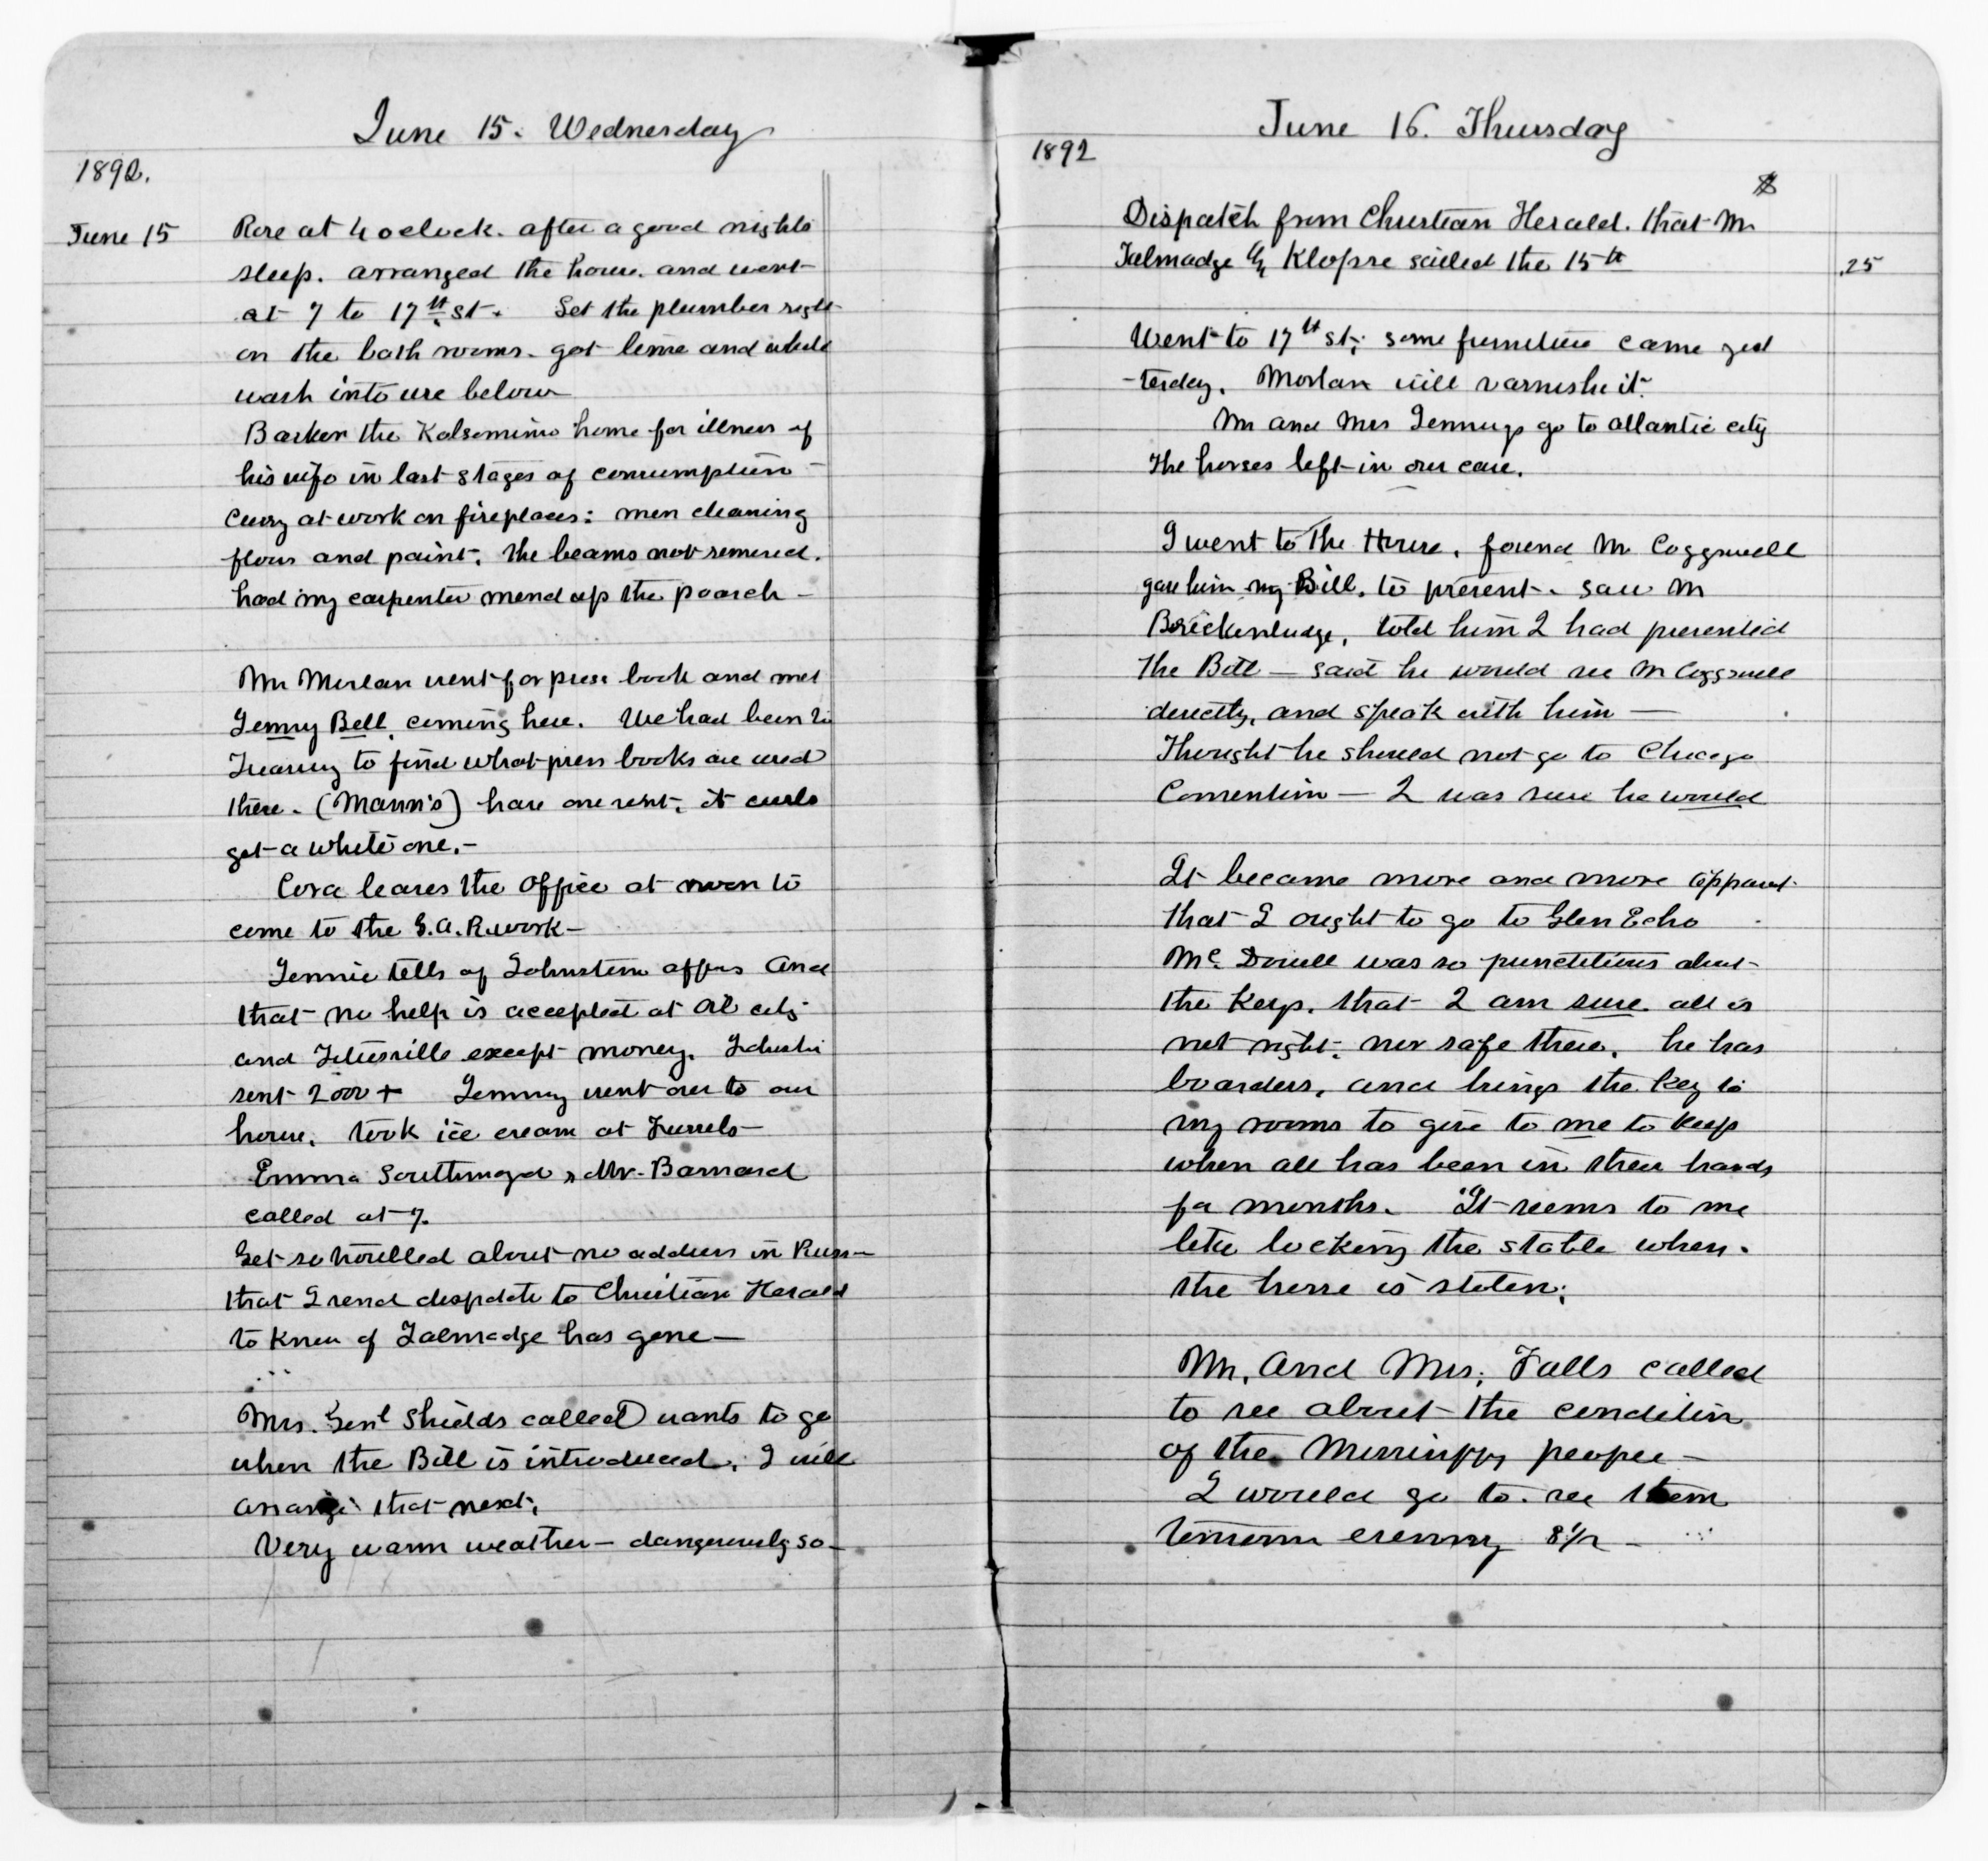 June 15. Wednesday
1892.
June 15 Rose at 4 oclock. after a good nights
sleep. arranged the house. and went
at 7 to 17th st. Set the plumber right
on the bath rooms. got lime and white
wash into use below
Barker the Kalsomine home for illness of
his wife in last stages of consumption –
Curry at work on fireplaces: men cleaning
floors and paint. the beams not removed.
had my carpenter mend up the poarch –
Mr Morlan went for press book and met
Jenny Bell, coming here. We had been to
Treasury to find what press books are used
there. (Mann's) have one sent. it curls
get a white one. –
Cora leaves the office at noon to
come to the G.A.R. work –
Jennie tells of Johnstown affairs and
that no help is accepted at Oil city
and Titusville except money.
sent 2000 + Jenny went over to our
house. took ice cream at
Emma Southmayd & Mr. Barnard
called at 7.
Get so troubled about no address in Russ–
that I send dispatch to Christian Herald
to know if Talmadge has gone –
Mrs. Genl Shields called wants to go
when the Bill is introduced. I will
arrange that next.
Very warm weather – dangerously so –
June 16. Thursday
1892
$
Dispatch from Christian Herald. that Mr
Talmadge & Klopse sailed the 15th .25
Went to 17th st; some furniture came yes
-terday. Morlan will varnish it.
Mr and Mrs Jennings go to atlantic city
The horses left in our care.
I went to The House, found Mr Coggswell
gave him my Bill. to present. saw Mr
Brickenridge, told him I had presented
the Bill – said he would see Mr Coggswell
directly, and speak with him —
Thought he should not go to Chicago
Convention — I was sure he would
It became more and more apparent
that I ought to go to Glen Echo
Mc. Dowell was so punctitious about
the keys. that I am sure all is
not right. nor safe there. he has
boarders, and brings the key to
my rooms to give to me to keep
when all has been in their hands
for months. It seems to me
like locking the stable when.
the horse is stolen.
Mr. and Mrs. Falls called
to see about the condition
of the Mississippi people –
I would go to see them
tomorrow evening 8 1/2 –